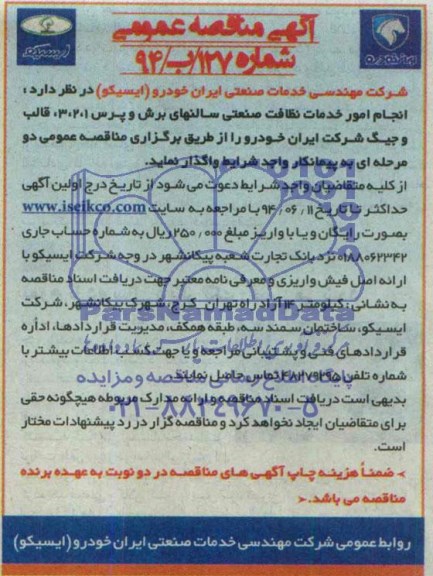 آگهی مناقصه عمومی
شماره ۱۲۷/ب/۹۴
ایسیکو
شرکت مهندسی خدمات صنعتی ایران خودرو (ایسیکو) در نظر دارد ؛
انجام امور خدمات نظافت صنعتی سالنهای برش و پرس ۳،۲،۱، قالب
و جیگ شرکت ایران خودرو را از طریق برگزاری مناقصه عمومی دو
مرحله ای به پیمانکار واجد شرایط واگذار نماید.
از کلیه متقاضیان واجد شرایط دعوت می شود از تاریخ درج اولین آگهی
حداکثر تا تاریخ ۹۴/۰۶/۱۱ با مراجعه به سایت www.iseikco.com
بصورت رایگان و یا با واریز مبلغ ۲۵۰/۰۰۰ ریال به شماره حساب جاری
۰۱۸۸۰۶۲۳۴۲ نزد بانک تجارت شعبه پیکانشهر در وجه شرکت ایسیکو با
ارائه اصل فیش واریزی و معرفی نامه معتبر جهت دریافت اسناد مناقصه
به نشانی : کیلومتر ۱۴ آزاد راه تهران _ کرج، شهرک پیکانشهر، شرکت
ایسیکو، ساختمان سمند سه، طبقه همکف، مدیریت قراردادها، اداره
قراردادهای فنی و پشتیبانی مراجعه و یا جهت کسب اطلاعات بیشتر با
شماره تلفن تماس حاصل نمایند.
بدیهی است دریافت اسناد مناقصه و ارائه مدارک مربوطه هیچگونه حقی
برای متقاضیان ایجاد نخواهد کرد و مناقصه گزار در رد پیشنهادات مختار
است.
ضمناً هزینه چاپ آگهی های مناقصه در دو نوبت به عهده برنده
مناقصه می باشد.
روابط عمومی شرکت مهندسی خدمات صنعتی ایران خودرو (ایسیکو)
ParsNamadData
پایگاه اطلاع رسانی مناقصه و مزایده
۰۲۱-۸۸۳۴۹۶۷۰-۵